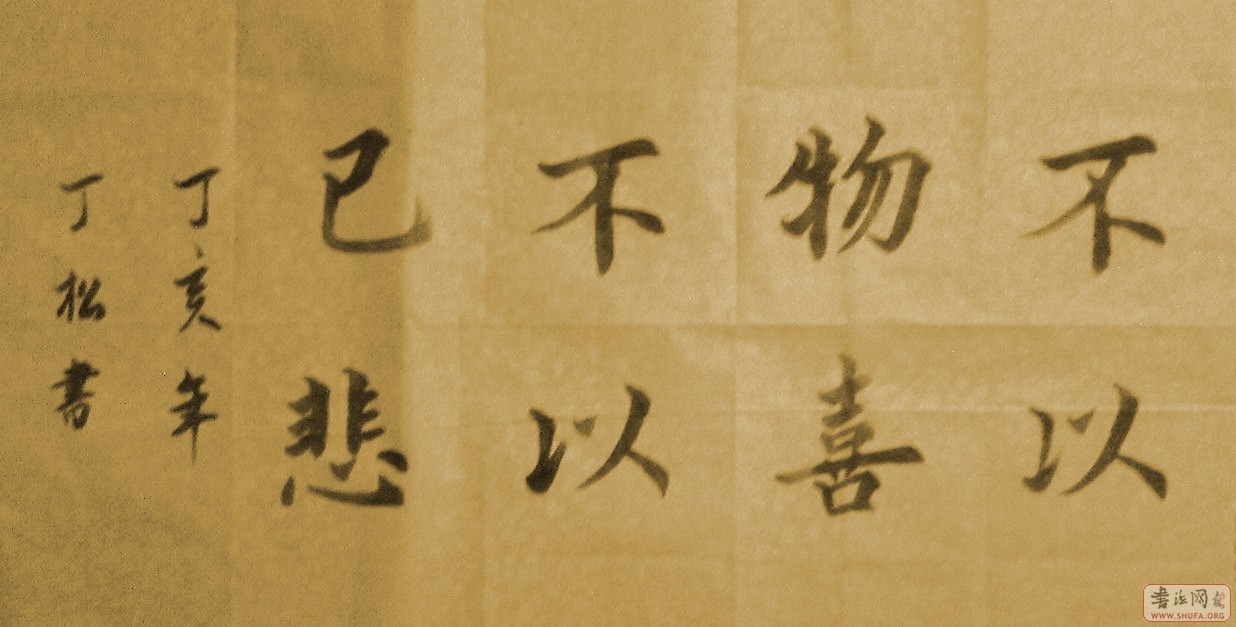 不以
物喜
不以
己悲
丁亥年
丁松書
書法网
WWW.SHUFA.ORG